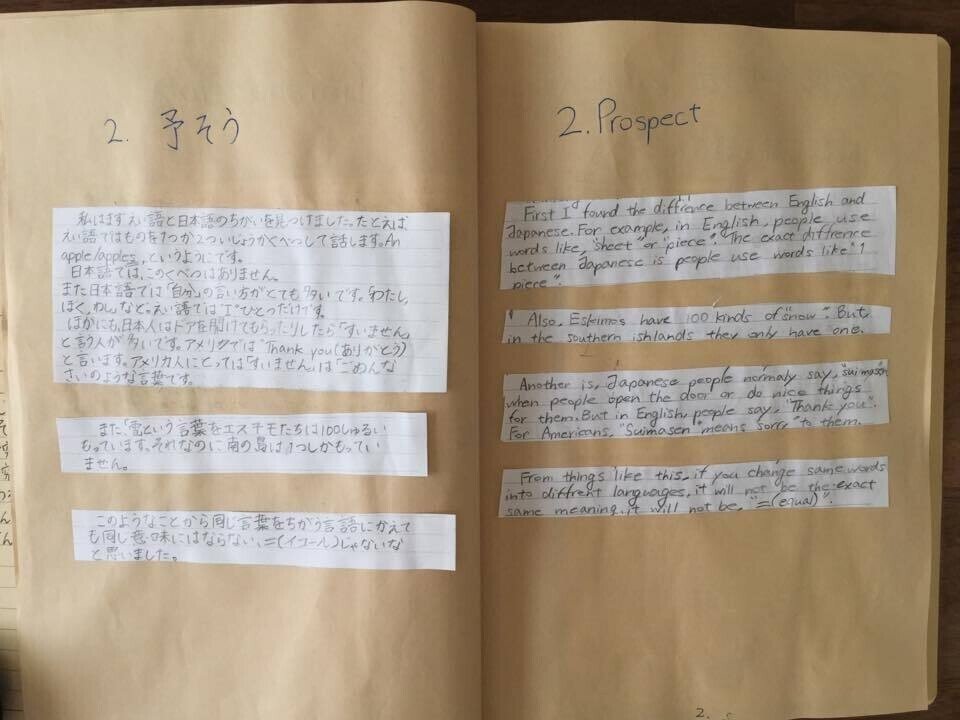 2. 予そう
私はまずえい語と日本語のちがいを見つけました。たとえば
えい語ではものを1つか2ついじょうかくべつして話します。An
apple/apples、というようにです。
日本語では、このくべつはありません。
また日本語では「自分」の言い方がとても多いです。「わたし、
ぼく、わし」など。えい語では"I"ひとつだけです。
ほかにも、日本人はドアを開けてもらったりしたら「すいません」
と言う人が多いです。アメリカでは"Thank you(ありがとう)
と言います。アメリカ人にとっては「すいません」は「ごめんな
さいのような言葉です。
また、「雪という言葉をエスキモたちは100しゅるい
もっています。それなのに南の島は1つしかもってい
ません。
このようなことから同じ言葉をちがう言語にかえて
も同じ意味にはならない、=(イコール)じゃないな
と思いました。
2. Prospect
First I found the diffrence between English and
Japanese. For example, in English, people use
words like, "sheet" or "piece". The exact diffrence
between Japanese is people use words like "1
piece".
Also, Eskimos have 100 kinds of "snow". But
in the southern ishlands they only have one.
Another is, Japanese people normaly say, "suimasen"
when people open the door or do nice things
for them. But in English, people say, "Thank you".
For Americans, "Suimasen" means sorry to them.
From things like this, if you change same words
into diffrent languages, it will not be the exact
same meaning, it will not be, "=(equal)".
2.